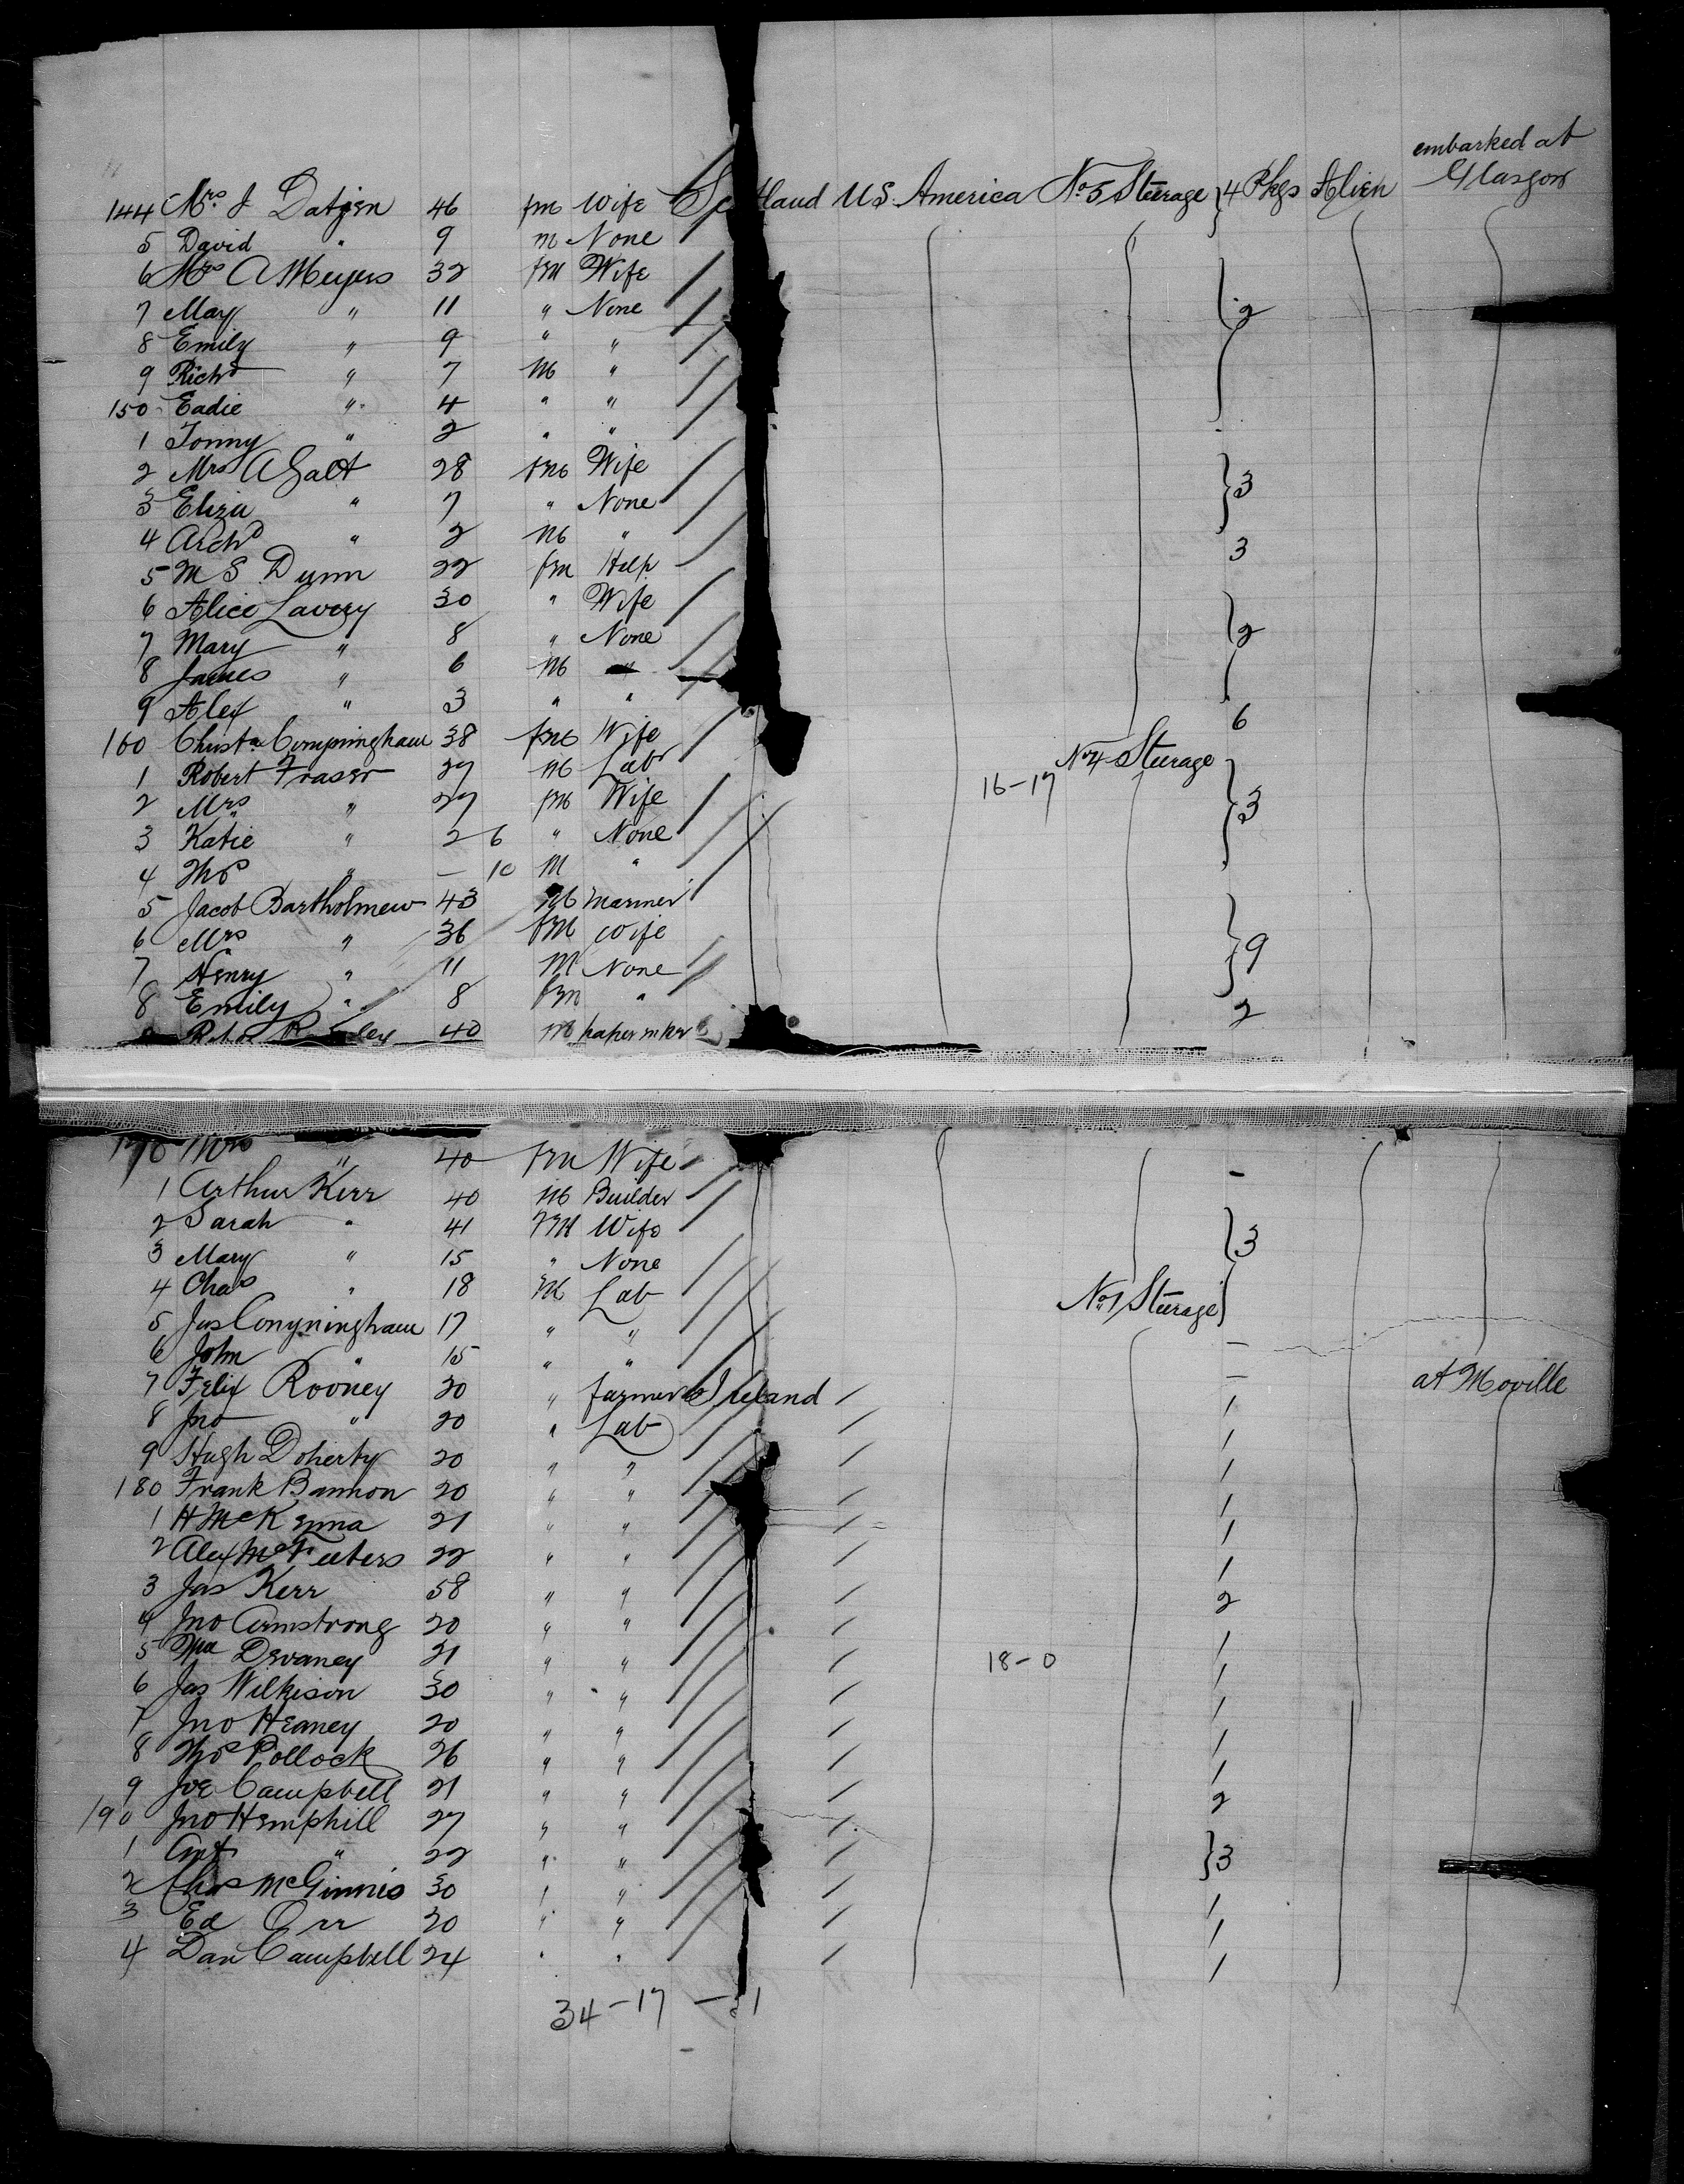 embarked at
144 Mrs J Datjen 46 fm Wife Scotland US America No 5 Steerage } 4 Pkgs Alien Glasgow
5 David " 9 m None
6 Mrs A Meyers 32 fm Wife
7 May " 11 " None } 2
8 Emily " 9 " "
9 Richd " 7 M "
150 Eadie " 4 " "
1 Tonny " 2 " "
2 Mrs A Galt 28 fm Wife
3 Eliza " 7 " None } 3
4 Archd " 2 M "
5 M S Dunn 22 fm Help 3
6 Alice Lavery 30 " Wife
7 Mary " 8 " None } 2
8 James " 6 M "
9 Alex " 3 " "
160 Christa Conyningham 38 fm Wife 6
1 Robert Fraser 27 M Labr No 4 Steerage
2 Mrs " 27 fm Wife 16-17 } 3
3 Katie " 2 6 " None
4 Thos " — 10 M "
5 Jacob Bartholmew 43 M Mariner
6 Mrs " 36 fm Wife } 9
7 Henry " 11 M None
8 Emily " 8 fm " 2
40 M paper mkr
170 Mrs " 40 fm Wife
1 Arthur Kerr 40 M Builder -
2 Sarah " 41 fm Wife
3 Mary " 15 " None } 3
4 Chas " 18 M Lab
5 Jas Conyningham 17 " " No 1 Steerage
6 John " 15 " " —
7 Felix Rooney 20 " farmer Ireland / — at Moville
8 Jno " 20 " Lab / 1
9 Hugh Doherty 20 " " / 1
180 Frank Bannon 20 " " / 1
1 H McKenna 21 " " / 1
2 Alex McFeeters 22 " " / 1
3 Jas Kerr 58 " " / 1
4 Jno Armstrong 20 " " / 2
5 Wm Devaney 21 " " / 18-0 1
6 Jas Wilkison 30 " " / 1
7 Jno Heaney 20 " " / 1
8 Thos Pollock 26 " " / 1
9 Joe Campbell 21 " " / 1
190 Jno Hemphill 27 " " / 2
1 " 22 " " / } 3
2 Chas McGinnis 30 " " /
3 Ed Orr 20 " " / 1
4 Dan Campbell 24 " " / 1
34-17 — 1